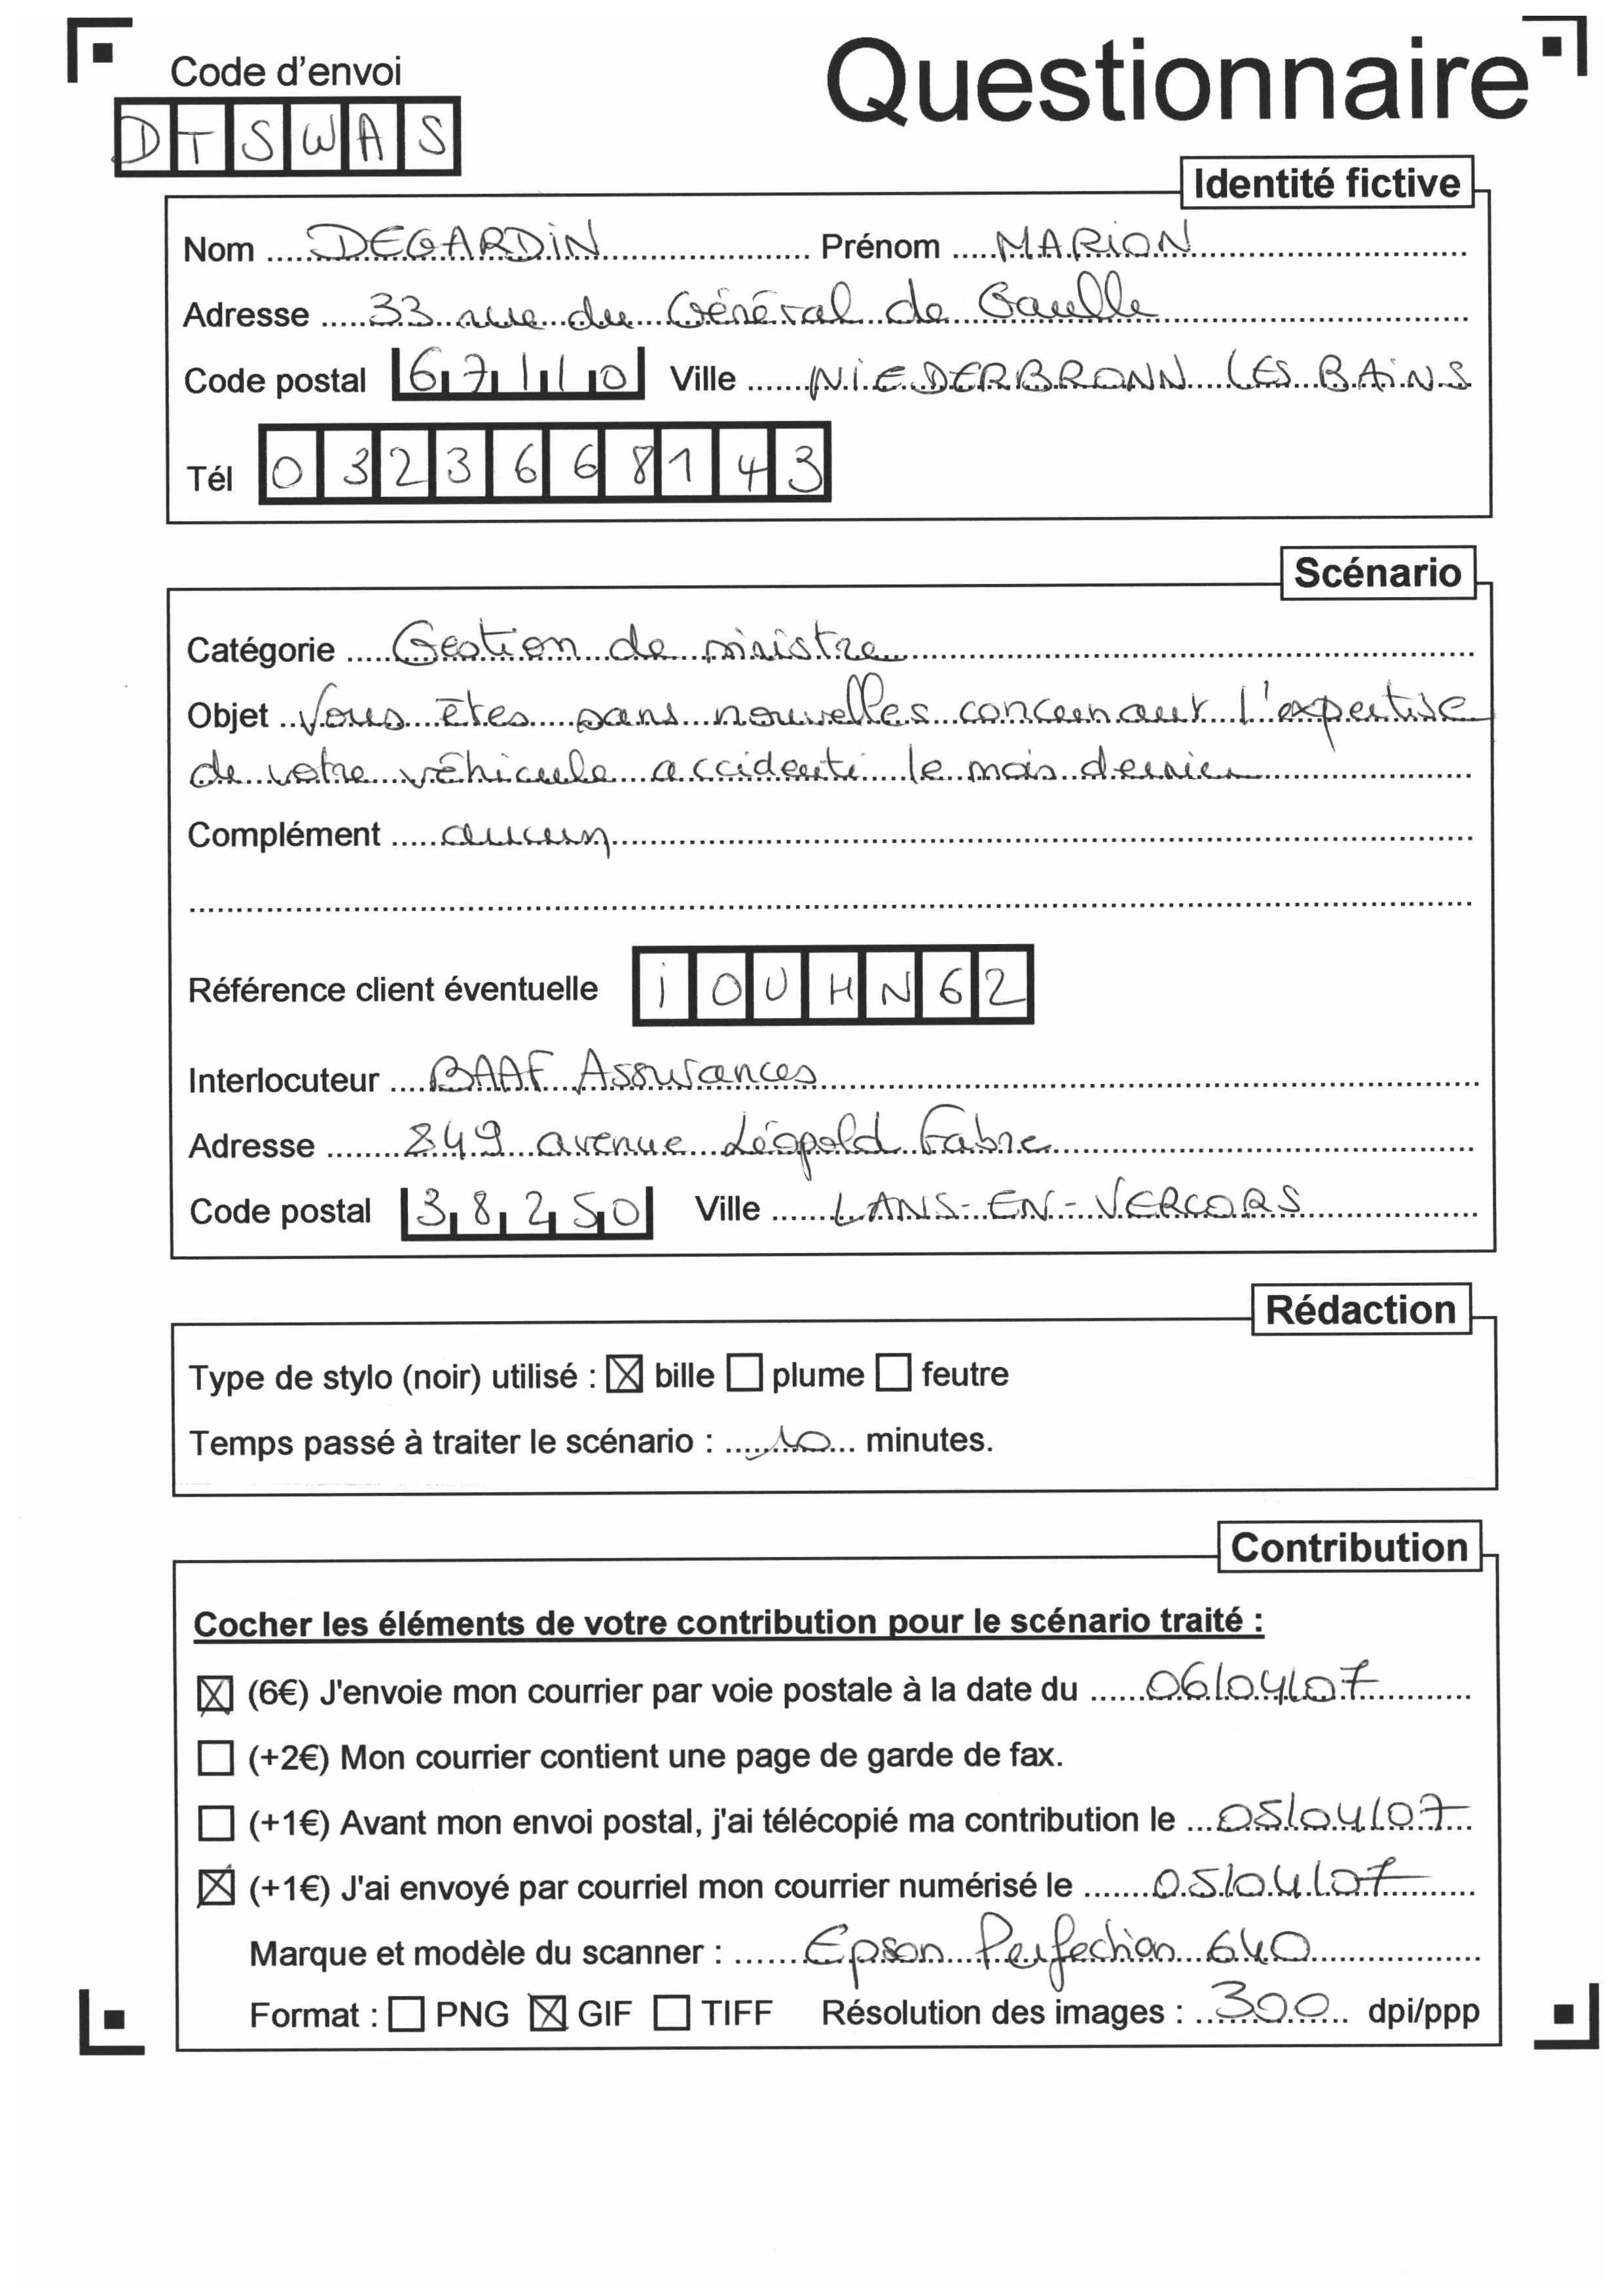 Code d'envoi
DTSWAS
Questionnaire
Identité fictive
Nom DEGARDIN Prénom MARION
Adresse 33 rue du Général de Gaulle
Code postal 67110 Ville NIEDERBRONN LES BAINS
Tél 0323668143
Scénario
Catégorie Gestion de sinistre
Objet Vous êtes sans nouvelles concernant l'expertise
de votre véhicule accidenté le mois dernier
Complément aucun
Référence client éventuelle iOUHN62
Interlocuteur BAAF Assurances
Adresse 849 avenue Léopold Fabre
Code postal 38250 Ville LANS-EN-VERCORS
Rédaction
Type de stylo (noir) utilisé : ☒ bille ☐ plume ☐ feutre
Temps passé à traiter le scénario : 10 minutes.
Contribution
Cocher les éléments de votre contribution pour le scénario traité :
☒ (6€) J'envoie mon courrier par voie postale à la date du 06/04/07
☐ (+2€) Mon courrier contient une page de garde de fax.
☐ (+1€) Avant mon envoi postal, j'ai télécopié ma contribution le 05/04/07
☒ (+1€) J'ai envoyé par courriel mon courrier numérisé le 05/04/07
Marque et modèle du scanner : Epson Perfection 640
Format : ☐ PNG ☒ GIF ☐ TIFF Résolution des images : 300 dpi/ppp